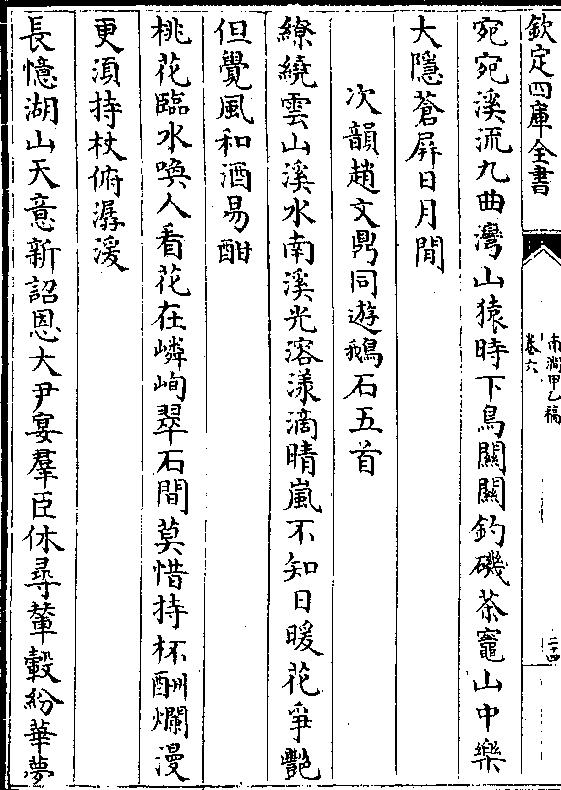 欽定四庫全書
南澗甲乙稿
卷六
二十四
宛宛溪流九曲灣山猿時下鳥關關釣磯茶竈山中樂
大隱蒼屛日月間
次韻趙文鼎同遊鵝石五首
繚繞雲山溪水南溪光溶漾滴晴嵐不知日暖花爭艷
但覺風和酒易酣
桃花臨水喚人看花在嶙峋翠石間莫惜持杯酬爛漫
更須持杖俯潺湲
長憶湖山天意新詔恩大尹宴羣臣休尋輦轂紛華夢